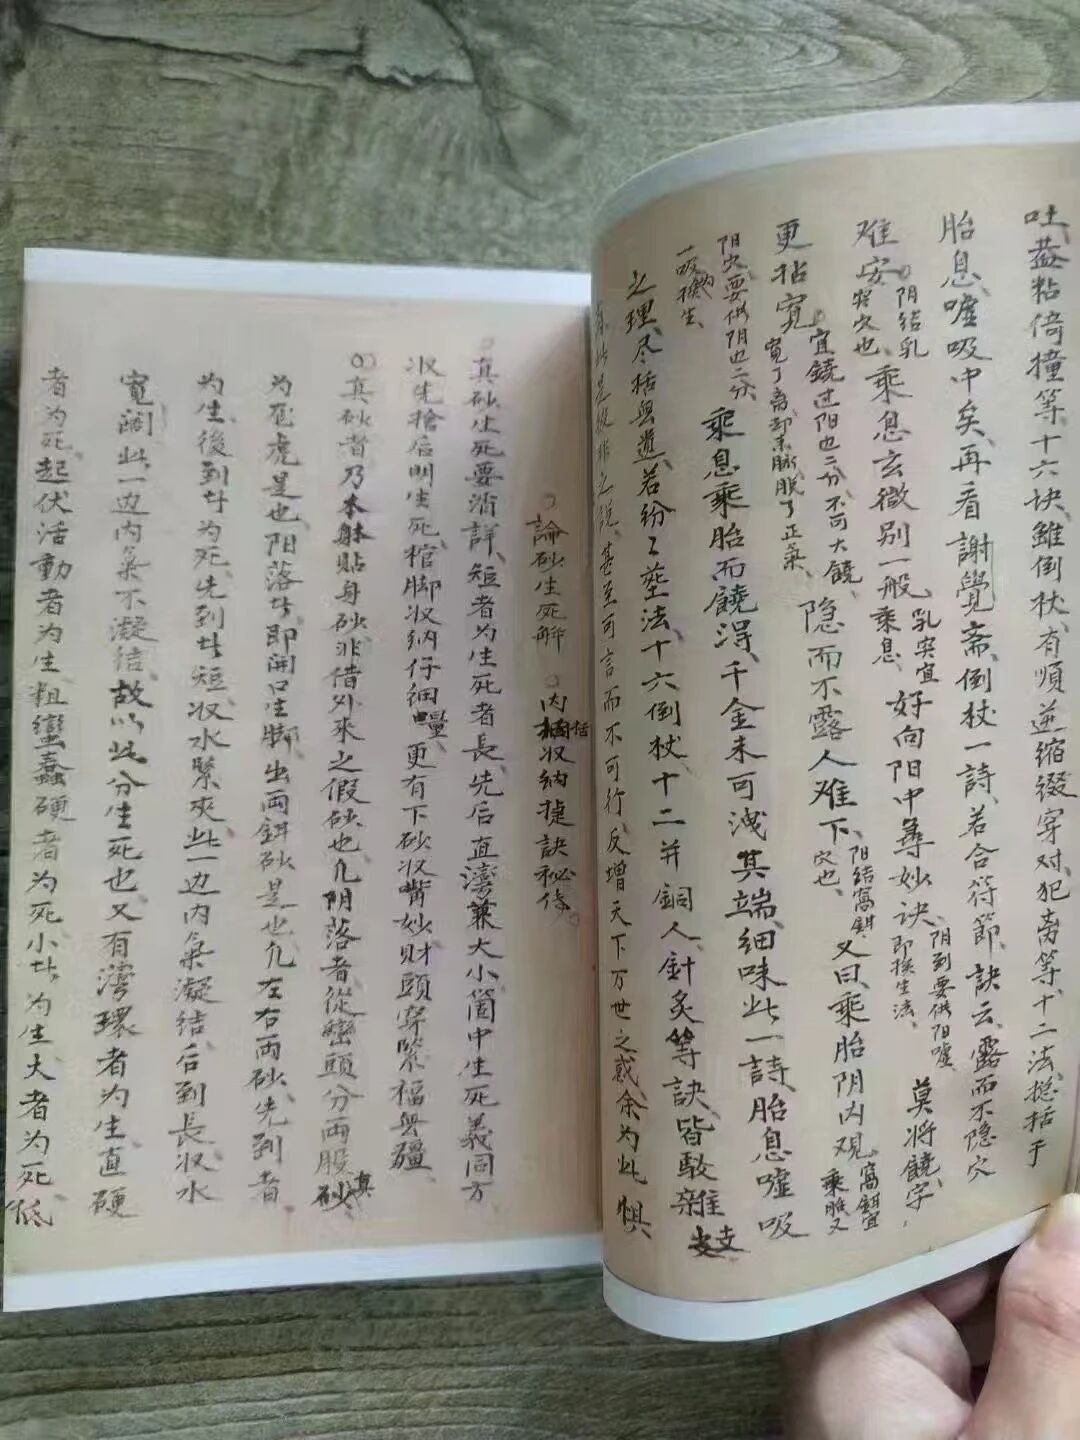 吐、葢粘倚撞等、十六块、雖倒杖、有順逆缩缀穿对、犯离等、十二法、捴括于
胎息、嘘吸中矣、再看謝覺斋、倒杖一詩、若合符節、訣云、露而不隐穴
难安、阴结乳
突穴也、乘息玄微别一般、乳突宜
乘息、好向阳中尋妙诀、阴到要供阳嘘、
即换生法、莫将饒字
更拈寛、宜饒过阳也二分不可大饒、
寛了离却来脉、脱了正氣、隐而不露人难下、阳结窩鉗、
穴也、又曰、乘胎阴内观、窩鉗宜
乘胎又
阳穴要供阴也二分、
一吸换生、乘息乘胎而饒得、千金未可洩其端、细味此一詩、胎息嘘吸
之理、尽括無遗、若纷々塟法、十六倒杖、十二并銅人、針炙等訣、皆駁雜
之說、甚至可言而不可行、反增天下万世之惑、余为此惧
論砂生死解 内括收纳捷訣秘传
真砂生死要消詳、短者为生死者長、先后直湾兼大小、箇中生死義同方、
收先搶后明生死、棺脚收纳仔细量、更有下砂收嘴妙、财頭穿緊福無疆、
真砂者乃本躰貼身砂、非借外來之假砂也、凢阴落者、從巒頭分两股真砂
为龙虎是也、阳落者、即開口生脚、出两鉗砂是也、凢左右两砂、先到者
为生、後到者为死、先到者短、收水緊夹、此一边内氣凝结、后到長、收水
寛闊、此一边内氣不凝结、故以此分生死也、又有湾環者为生、直硬
者为死、起伏活動者为生、粗蠻蠢硬者为死、小者为生、大者为死、低